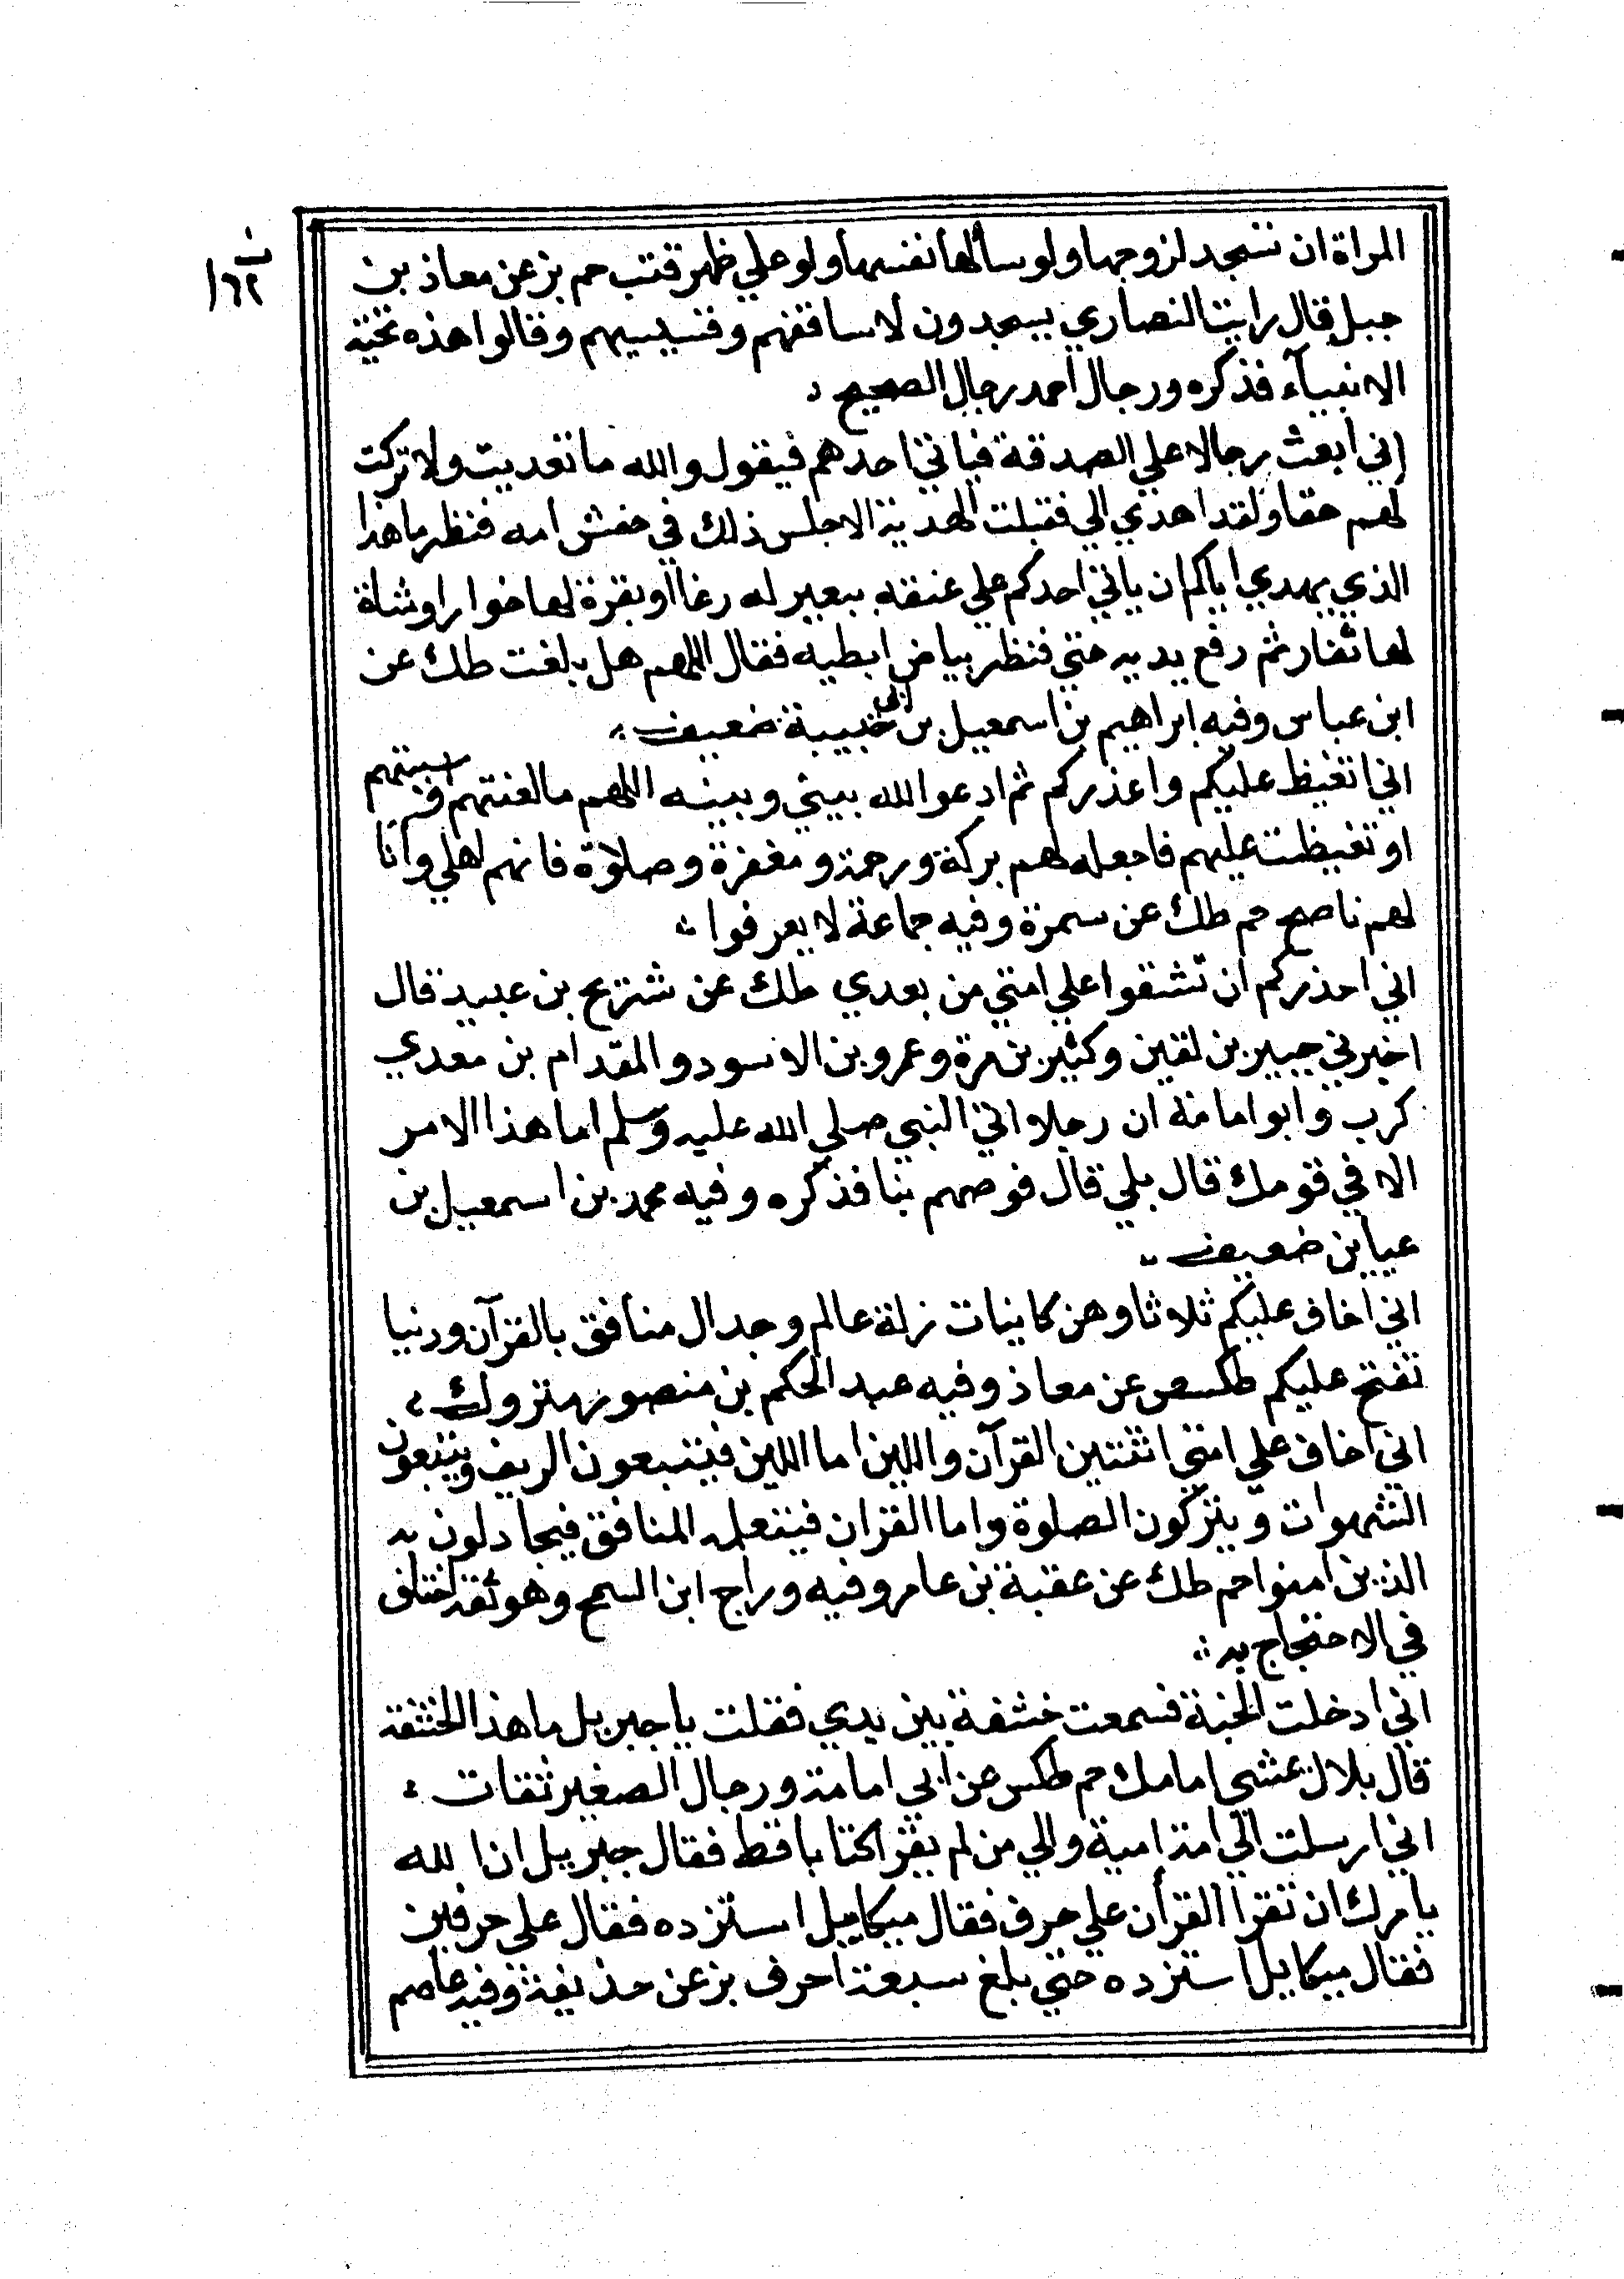 ١٦٢
المراة ان تسجد لزوجها ولو سألها نفسها ولو علي ظهر قتب حم بز عن معاذ بن
جبل قال رايت النصاري يسجدون لاساقفهم وقسيسيهم وقالوا هذه تحية
الانبيآء فذكره ورجال احمد رجال الصحيح
اني ابعث رجالا علي الصدقة فياتي احدهم فيقول والله ما تعديت ولا تركت
لهم حقا ولقد اهدي الي فقبلت الهدية الا جلس ذلك في حفش امه فنظر ما هذا
الذي يهدي اياكم ان ياتي احدكم علي عنقه ببعير له رغا او بقرة لها خوار او شاة
لها ثغار ثم رفع يديه حتي فنظر بياض ابطيه فقال اللهم هل بلغت طك عن
ابن عباس وفيه ابراهيم بن اسمعيل بن ابي حبيبة ضعيف
اني اتغيظ عليكم واعذركم ثم ادعوا الله بيني وبينه اللهم ما لعنتهم او سبتهم
او تغيظت عليهم فاجعله لهم بركة ورحمة ومغفرة وصلاوة فانهم لهلي وانا
لهم ناصح حم طك عن سمرة وفيه جماعة لا يعرفوا
اني احذركم ان تشقوا علي امتي من بعدي طك عن شريح بن عبيد قال
اخبرني جبير بن لقين وكثير بن مرة وعمرو بن الاسود والمقدام بن معدي
كرب وابو امامة ان رجلا اتي النبي صلي الله عليه وسلم اما هذا الامر
الا في قومك قال بلي قال فوصهم بنا فذكره وفيه محمد بن اسمعيل بن
عياين ضعيف
اني اخاف عليكم ثلاثا وهن كاينات زلة عالم وجدال منافق بالقرآن ودنيا
تفتح عليكم طكسص عن معاذ وفيه عبد الحكم بن منصور متروك
اني اخاف علي امتي اثنتين القرآن واللبن اما اللبن فيتبعون الريف ويتبعون
الشهوات ويتركون الصلوة واما القران فيتعلمه المنافق فيجادلون به
الذين امنوا حم طك عن عقبة بن عامر وفيه وراج ابن السمح وهو ثقة اختلف
في الاحتجاج به
اني ادخلت الجنة فسمعت خشفة بين يدي فقلت يا جبريل ما هذا الخشفة
قال بلال يمشي امامك حم طكس عن ابي امامة ورجال الصغير ثقات
اني ارسلت الي امة امية والي من لم يقرا كتابا قط فقال جبريل ان الله
يامرك ان تقرا القرأن علي حرف فقال ميكاييل استزده فقال علي حرفين
فقال ميكاييل استزده حتي بلغ سبعة احرف بز عن حذيفة وفيه عاصم